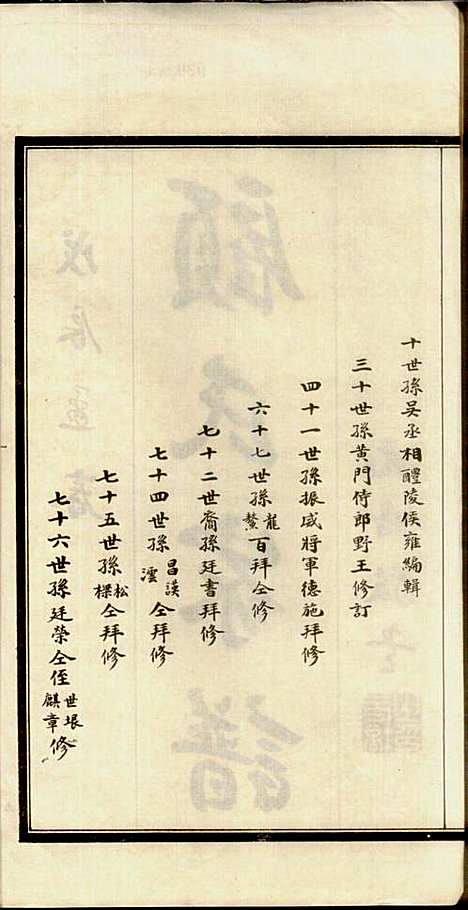 十世孫吳丞相醴陵侯雍編輯
三十世孫黃門侍郎野王修訂
四十一世孫振威將軍德施拜修
六十七世孫龍鰲百拜仝修
七十二世裔孫廷書拜修
七十四世孫昌謨澐仝拜修
七十五世孫松樑仝拜修
七十六世孫廷榮仝侄世垠麒章修